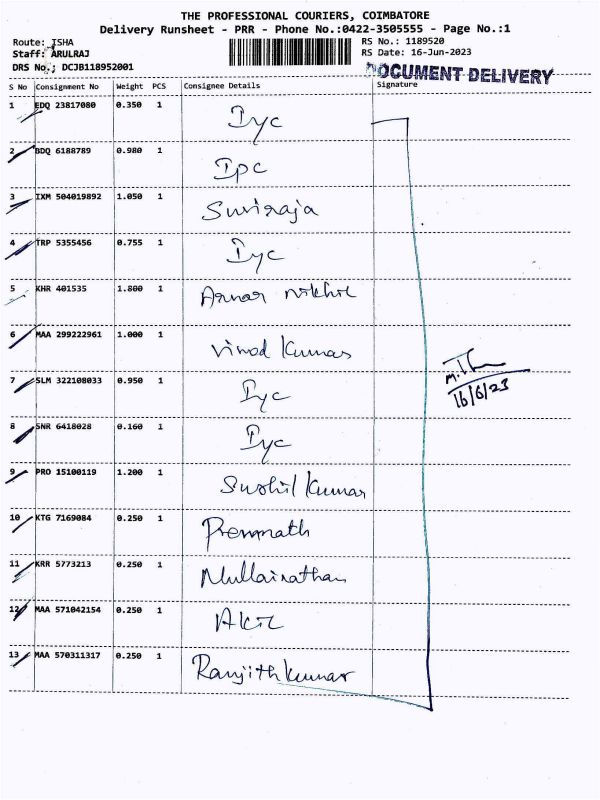 THE PROFESSIONAL COURIERS, COIMBATORE
Delivery Runsheet - PRR - Phone No.:0422-3505555 - Page No.:1
Route: ISHA
RS No.: 1189520
Staff: ARULRAJ
RS Date: 16-Jun-2023
DRS No.; DCJB118952001
DOCUMENT DELIVERY
S No Consignment No Weight PCS Consignee Details Signature
1 EDQ 23817080 0.350 1 Iyc
2 BDQ 6188789 0.980 1 Ipc
3 IXM 504019892 1.050 1
4 TRP 5355456 0.755 1 Iyc
5 KHR 401535 1.800 1 nikhil
6 MAA 299222961 1.000 1 Vinod Kumar
7 SLM 322108033 0.950 1 Iyc
8 SNR 6418028 0.160 1 Iyc
9 PRO 15100119 1.200 1 Sushil Kumar
10 KTG 7169084 0.250 1 Premnath
11 KRR 5773213 0.250 1 Mullainathan
12 MAA 571042154 0.250 1 Akil
13 MAA 570311317 0.250 1 Ranjithkumar
16/6/23